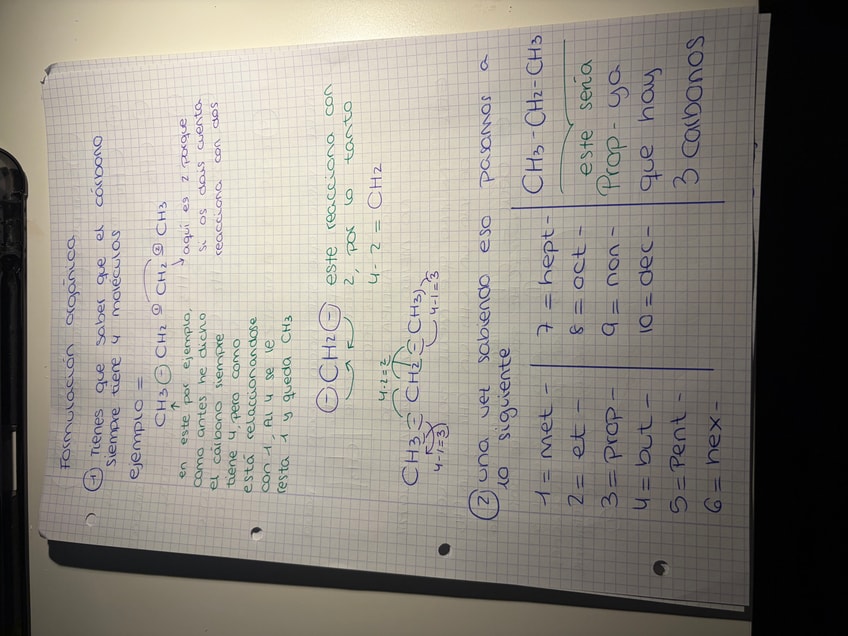 Formulación orgánica
① Tienes que saber que el cárbono
siempre tiene 4 moléculas
ejemplo =
CH3 - CH2 - CH2 - CH3
en este por ejemplo,
como antes he dicho
el cárbono siempre
tiene 4, pero como
está relacionandose
con 1, Al 4 se le
resta 1 y queda CH3
↳ aquí es 2 porque
si os dais cuenta
reacciona con dos
- CH2 -
este reacciona con
2, por lo tanto
4-2 = CH2
4-2=2
CH3 - CH2 - CH3
4-1=3
4-1=3
② una vez sabiendo eso pasamos a
lo siguiente
1 = met -
2 = et -
3 = prop -
4 = but -
5 = Pent -
6 = hex -
7 = hept -
8 = oct -
9 = non -
10 = dec -
CH3 - CH2 - CH3
este sería
Prop - ya
que hay
3 carbonos